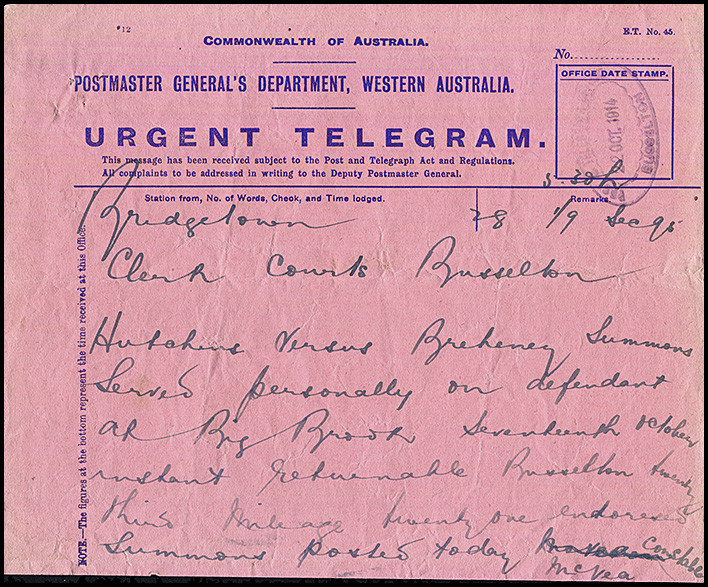 #12
E.T. No. 45.
COMMONWEALTH OF AUSTRALIA.
No.
POSTMASTER GENERAL'S DEPARTMENT, WESTERN AUSTRALIA.
OFFICE DATE STAMP.
BUSSELTON
OCT. 1914
URGENT TELEGRAM.
This message has been received subject to the Post and Telegraph Act and Regulations.
All complaints to be addressed in writing to the Deputy Postmaster General.
5.30
Station from, No. of Words, Check, and Time lodged.
Remarks.
Bridgetown 28 1/9
Clerk Courts Busselton
Hutchins Versus Breheney Summons
Served personally on defendant
at Big Brook Seventeenth October
instant returnable Busselton twenty
third Mileage twenty one endorsed
Summons posted today Constable
McVea
NOTE.—The figures at the bottom represent the time received at this Office.